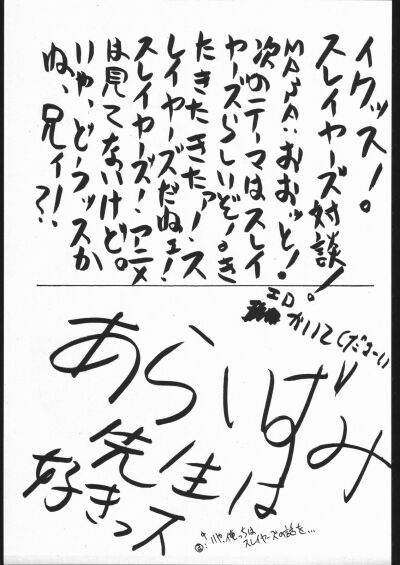 イクッス！。
スレイヤーズ対談！
MASA:おおッと！。
次のテーマはスレイ
ヤーズらしいぞ！。き
たきたきたァ！、ス
レイヤーズだねェ！
スレイヤーズ！、アニメ
は見てないけど。
いや、どーッスか
ね、兄ィ？！
エロ。
かいてくださーい
あらいずみ
先生は
好きっス
いや、俺っちは
スレイヤーズの話を…